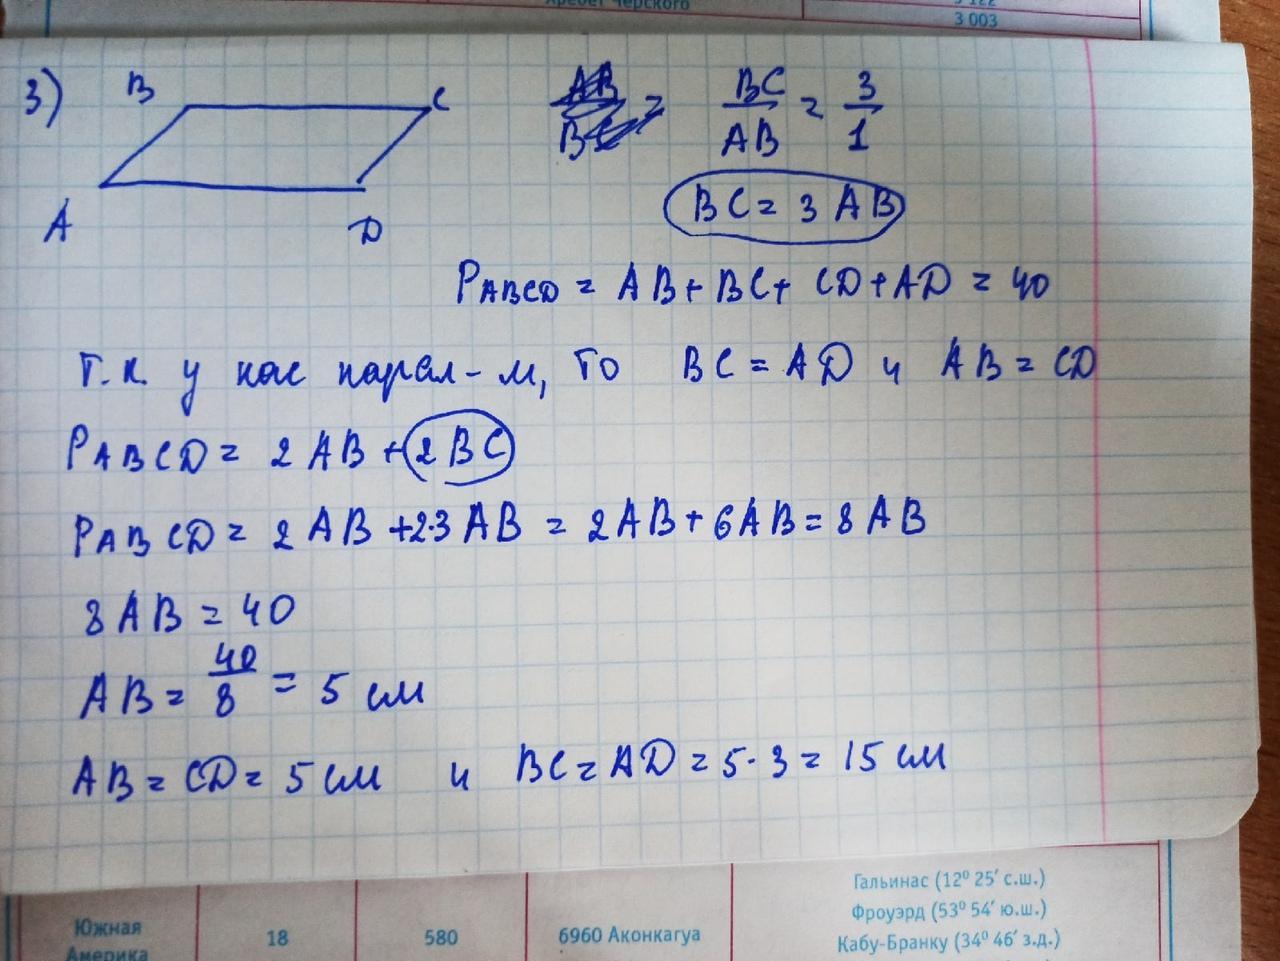 Хребет Черского
3 122
3 003
3)
B C
A D
BC/AB = 3/1
BC = 3 AB
PABCD = AB + BC + CD + AD = 40
т.к. у нас парал-м, то BC = AD и AB = CD
PABCD = 2 AB + 2 BC
PABCD = 2 AB + 2·3 AB = 2AB + 6AB = 8 AB
8 AB = 40
AB = 40/8 = 5 см
AB = CD = 5 см и BC = AD = 5 · 3 = 15 см
Южная Америка
18
580
6960 Аконкагуа
Гальинас (12⁰ 25′ с.ш.)
Фроуэрд (53⁰ 54′ ю.ш.)
Кабу-Бранку (34⁰ 46′ з.д.)